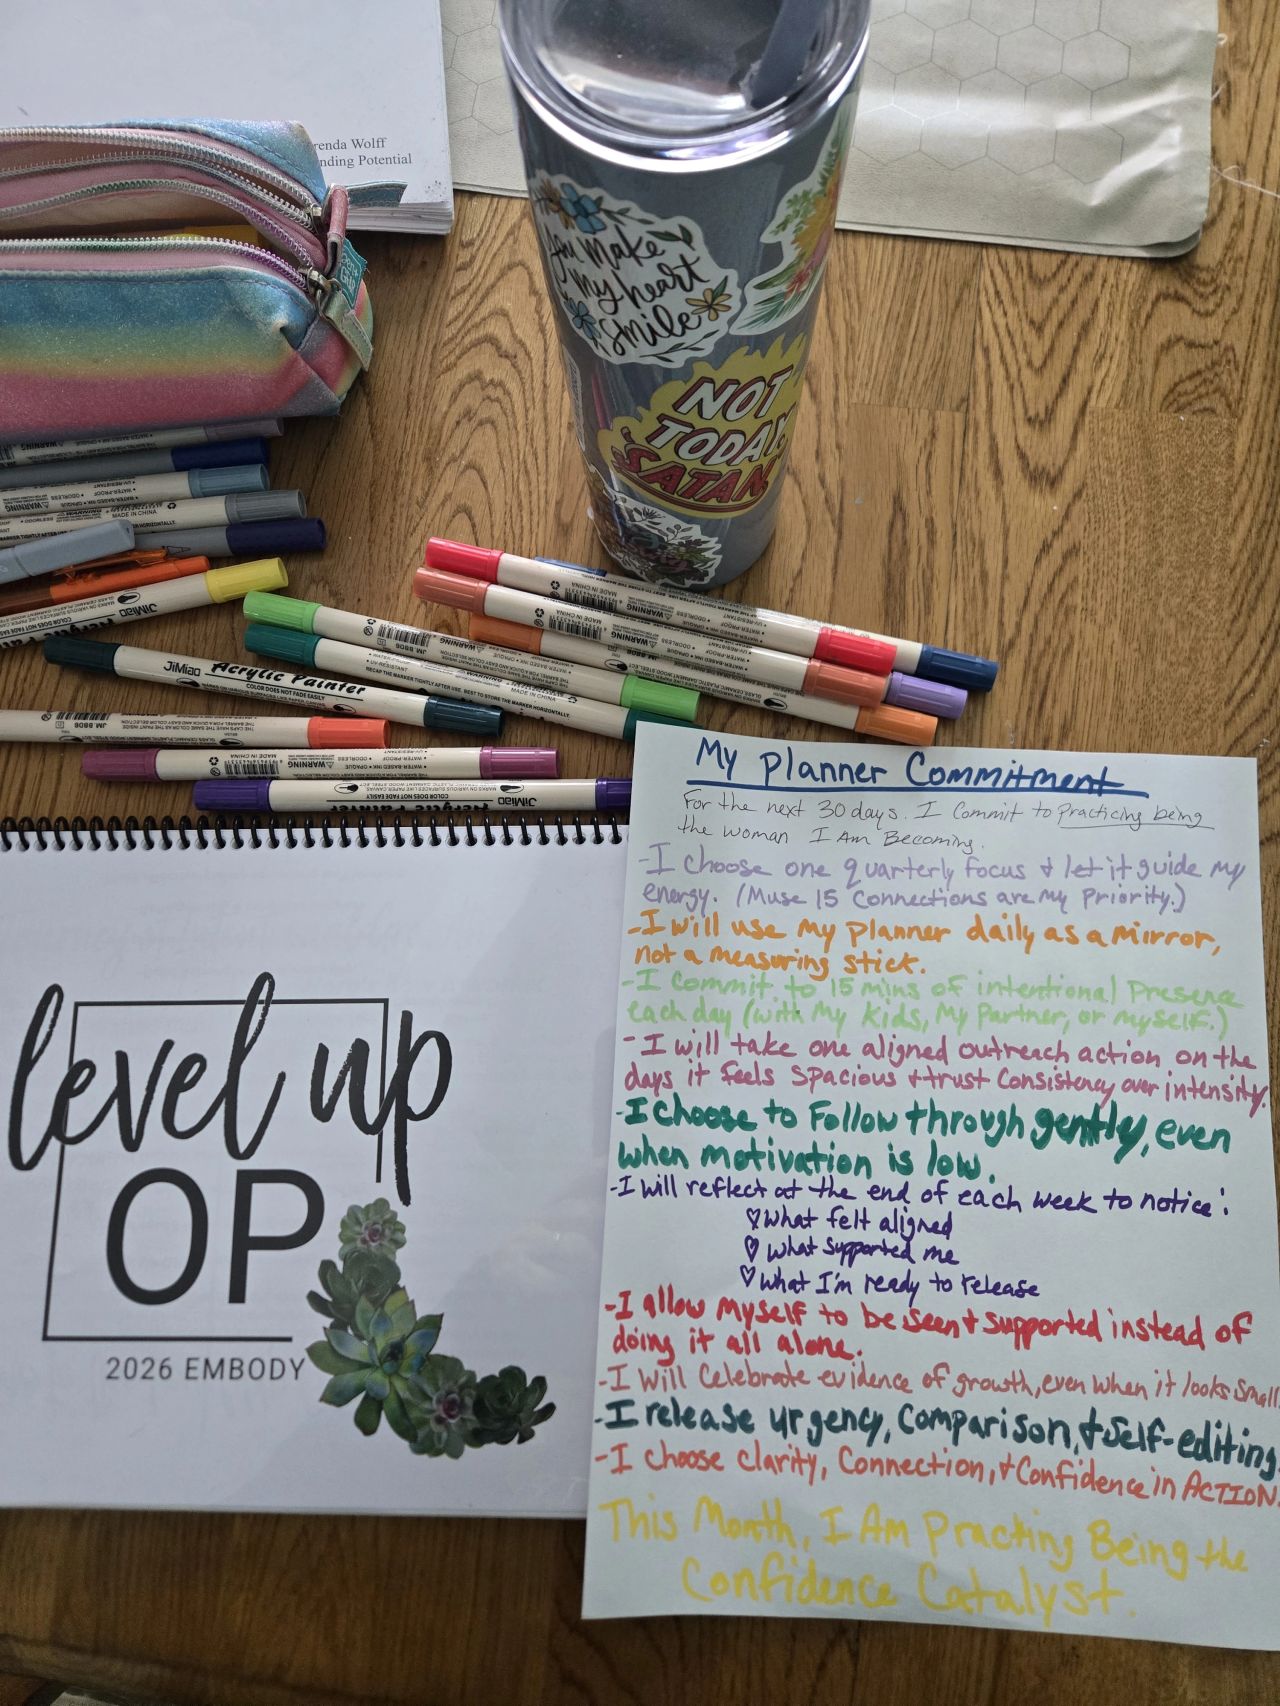 Wolff
Potential
You make
my heart
smile
NOT
TODAY,
SATAN
JiMiao Acrylic Painter
COLOR DOES NOT FADE EASILY
My Planner Commitment
For the next 30 days. I Commit to Practicing being
the woman I Am Becoming.
-I choose one quarterly focus & let it guide my
energy. (Muse 15 Connections are my Priority.)
-I will use my planner daily as a mirror,
not a measuring stick.
-I commit to 15 mins of intentional Presence
each day (with My kids, My Partner, or myself.)
-I will take one aligned outreach action on the
days it feels spacious & trust Consistency over intensity.
-I choose to Follow through gently, even
when motivation is low.
-I will reflect at the end of each week to notice:
♡What felt aligned
♡What supported me
♡What I'm ready to release
-I allow myself to be seen & supported instead of
doing it all alone.
-I will Celebrate evidence of growth, even when it looks small.
-I release urgency, Comparison, & Self-editing.
-I choose clarity, Connection, & Confidence in ACTION.
This Month, I Am Practing Being the
Confidence Catalyst.
level up
OP
2026 EMBODY